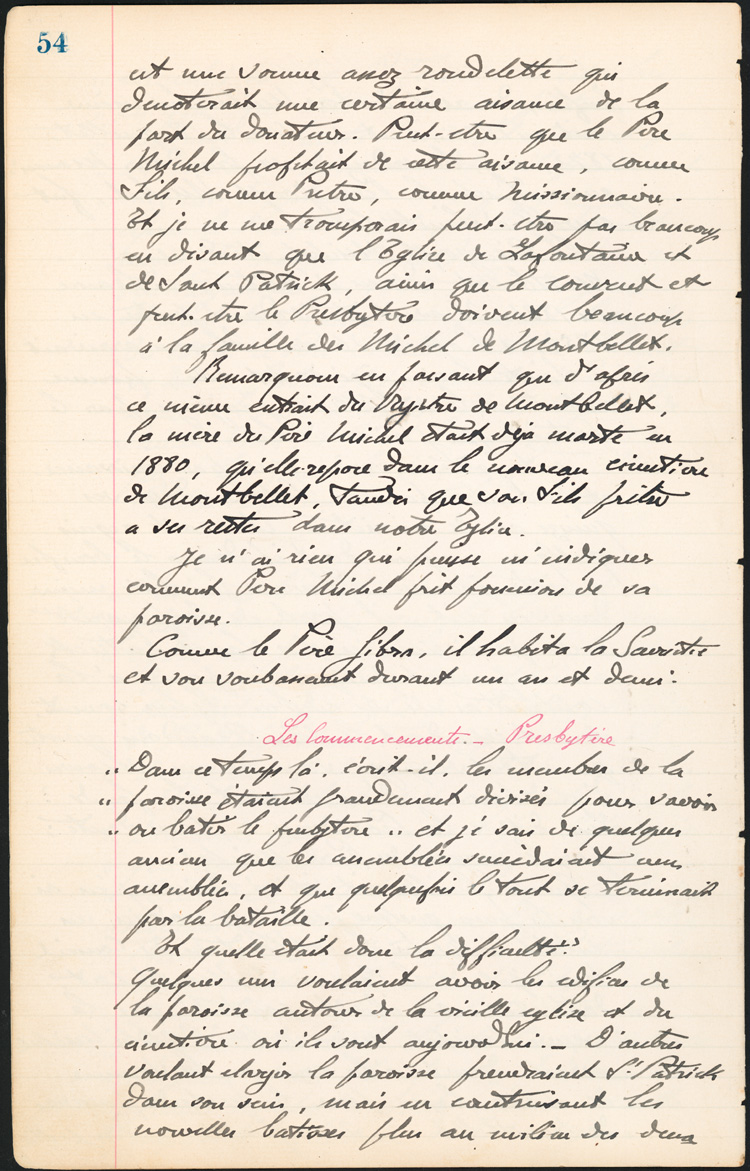 54
est une somme assez rondelette qui
denoterait une certaine aisance de la
part du donateur. Peut-etre que le Pere
Michel profitait de cette aisance, comme
Fils, comme Prêtre, comme Missionnaire.
Et je ne me tromperais peut-etre pas beaucoup
en disant que l'Eglise de Lafontaine et
de Saint Patrick, ainsi que le couvent et
peut-etre le Presbytère doivent beaucoup
à la famille des Michel de Montbellet.
Remarquons en passant que d'après
ce même extrait du Registre de Montbellet,
la mère du Père Michel était déjà morte en
1880, qu'elle repose dans le nouveau cimetière
de Montbellet, tandis que son Fils prêtre
a ses restes dans notre Eglise.
Je n'ai rien qui puisse m'indiquer
comment Pere Michel prit possession de sa
paroisse.
Comme le Père Gibra, il habita la Sacristie
et son soubassement durant un an et demi.
Les Commencements. — Presbytère
" Dans ce temps là, écrit-il, les membres de la
" paroisse étaient grandement divisés pour savoir
" ou batir le presbytere " et je sais de quelques
anciens que les assemblées succédaient aux
assemblées, et que quelquefois le tout se terminait
par la bataille.
Et quelle était donc la difficulté?
Quelques uns voulaient avoir les edifices de
la paroisse autour de la vieille eglise et du
cimetière où ils sont aujourd'hui. — D'autres
voulant elargir la paroisse prendraient St. Patrick
dans son sein, mais en construisant les
nouvelles batisses plus au milieu des deux